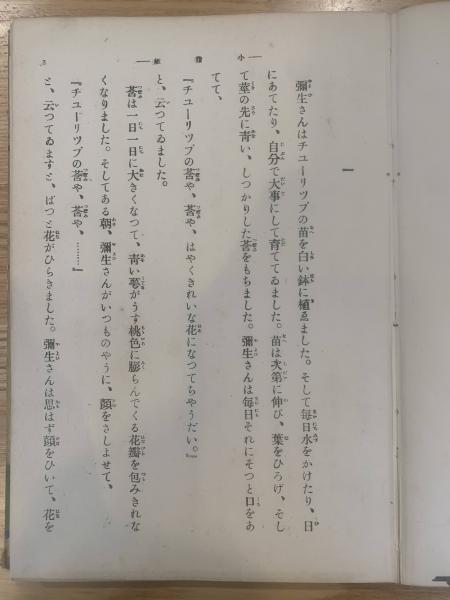 小指姫
3
一
彌生さんはチユーリツプの苗を白い鉢に植ゑました。そして毎日水をかけたり、日
にあてたり、自分で大事にして育ててゐました。苗は次第に伸び、葉をひろげ、そし
て莖の先に青い、しつかりした莟をもちました。彌生さんは毎日それにそつと口をあ
てて、
『チユーリツプの莟や、莟や、はやくきれいな花になつてちやうだい。』
と、云つてゐました。
莟は一日一日に大きくなつて、青い萼がうす桃色に膨らんでくる花瓣を包みきれな
くなりました。そしてある朝、彌生さんがいつものやうに、顏をさしよせて、
『チユーリツプの莟や、莟や、………』
と、云つてゐますと、ぱつと花がひらきました。彌生さんは思はず顏をひいて、花を